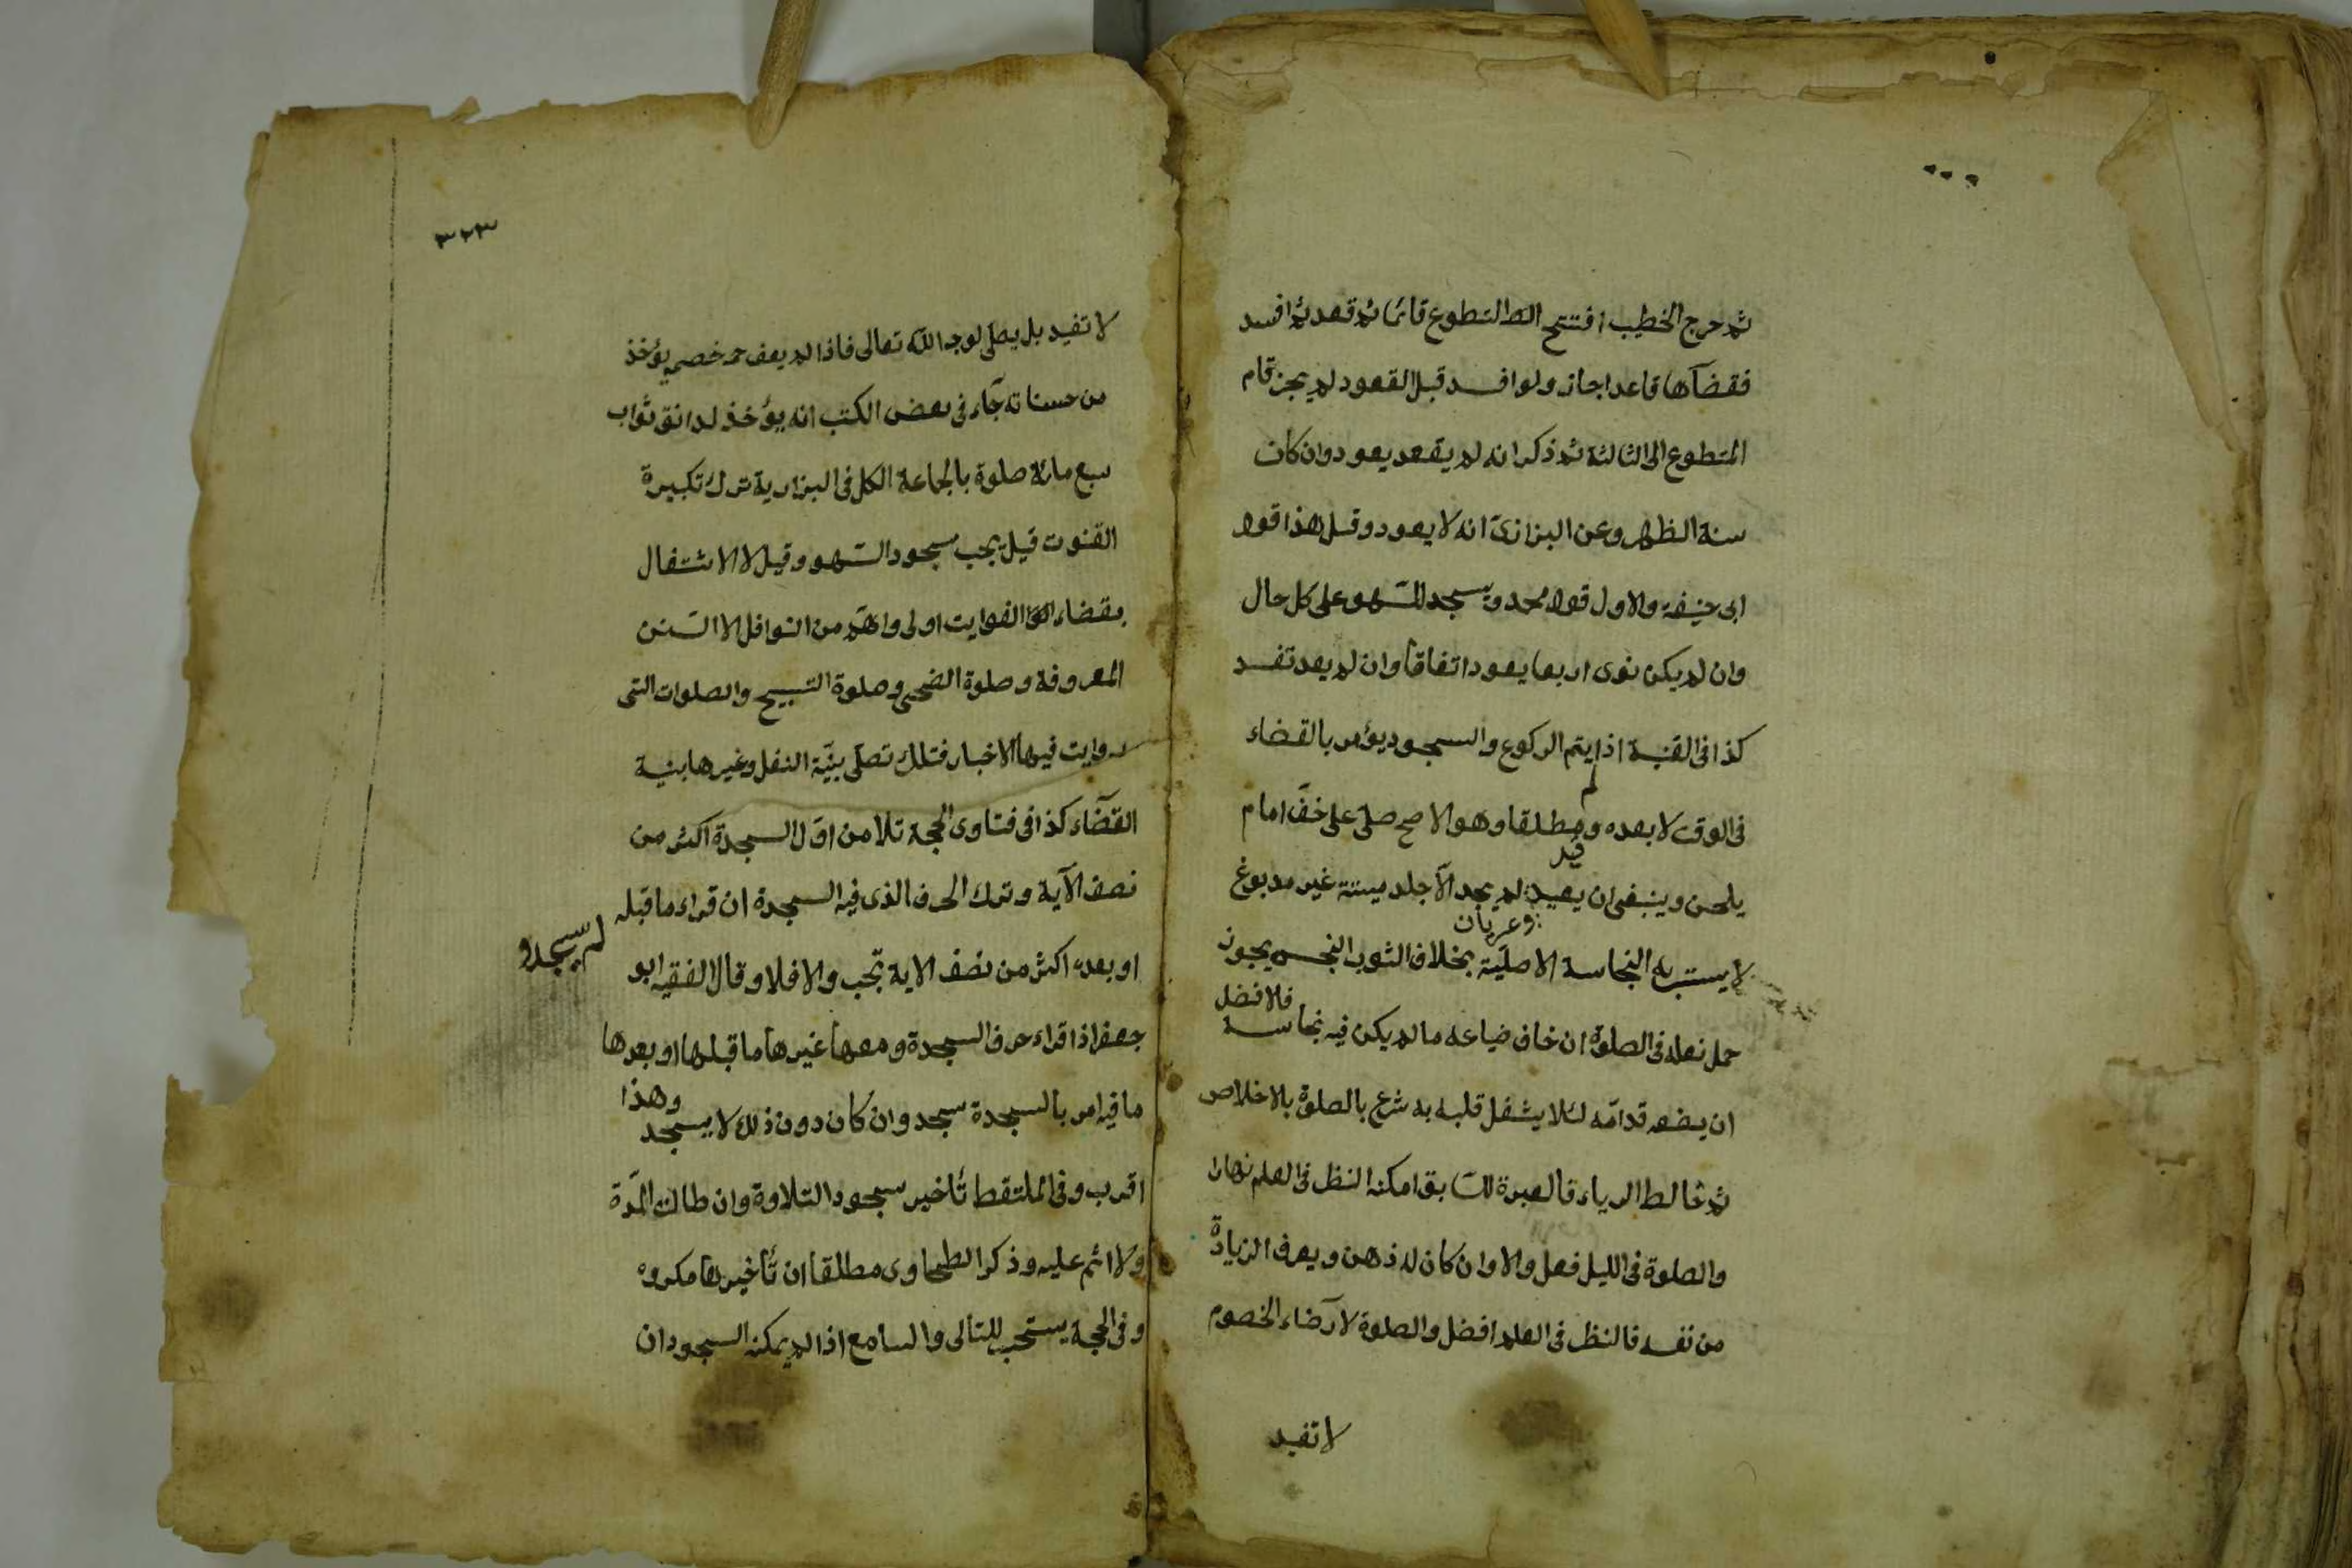 ثم خرج الخطيب افتتح التطوع قائما ثم قعد ثم افسد
فقضآها قاعدا جاز ولو افسد قبل القعود لم يجز قام
المتطوع الى الثالثة ثم ذكر انه لم يقعد يعود وان كان
سنة الظهر وعن البزازى انه لا يعود وقيل هذا قول
ابى حنيفة والاول قول محمد ويسجد للسهو على كل حال
وان لم يكن نوى اربعا يعود اتفاقا وان لم يعد تفسد
كذا فى القنية اذا لم يتم الركوع والسجود يؤمر بالقضاء
فى الوقت لا بعده ومطلقا وهو الاصح صلى على خف امام
يلحن وينبغى ان يعيد لم يجد الا جلد ميتة غير مدبوغ
وعريان
لا يستر به النجاسة الاصلية بخلاف الثوب النجس يجوز
حمل نعله فى الصلوة ان خاف ضياعه ما لم يكن فيه نجاسة فلافضل
ان يضعه قدامه لئلا يشغل قلبه به شرع بالصلوة بالاخلاص
ثم خالط الرياء فالعبرة للسابق امكنه النظر فى العلم نهارا
والصلوة فى الليل فعل والا وان كان له ذهن ويعرف الزيادة
من نفسه فالنظر فى العلم افضل والصلوة لارضاء الخصوم
لا تفيد
٣٢٣
لا تفيد بل يصلى لوجه الله تعالى فاذا لم يعف خصمه يؤخذ
من حسناته جآء فى بعض الكتب انه يؤخذ لدانق ثواب
سبع مائة صلوة بالجماعة الكل فى البزازية ترك تكبيرة
القنوت قيل يجب سجود السهو وقيل لا الاشتغال
بقضاء الفوايت اولى واهم من النوافل الا السنن
المعروفة وصلوة الضحى وصلوة التسبيح والصلوات التى
روايت فيها الاخبار فتلك تصلى بنية النفل وغيرها بنية
القضآء كذا فى فتاوى الحجة تلا من اول السجدة اكثر من
نصف الآية وترك الحرف الذى فيه السجدة ان قراء ما قبله
لم يسجد و
او بعده اكثر من نصف الاية تجب والا فلا وقال الفقيه ابو
جعفر اذا قراء حرف السجدة ومعها غيرها ما قبلها او بعدها
ما فيه امر بالسجدة سجد وان كان دون ذلك لا يسجد وهذا
اقرب وفى الملتقط تأخير سجود التلاوة وان طالت المدة
ولا اثم عليه وذكر الطحاوى مطلقا ان تأخيرها مكروه
وفى الحجة يستحب للتالى والسامع اذا لم يمكنه السجود ان